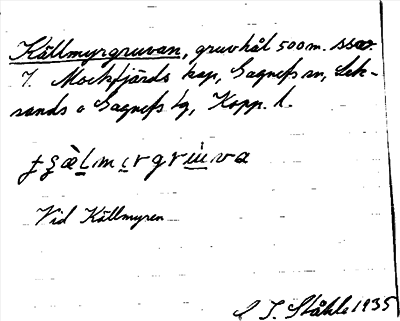 Källmyrgruvan, gruvhål 500 m. ssv.
f. Mockfjärds kap, Gagnefs sn, Lek-
sands o Gagnefs tg, Kopp. l.
Vid Källmyren
I. Ståhle 1935